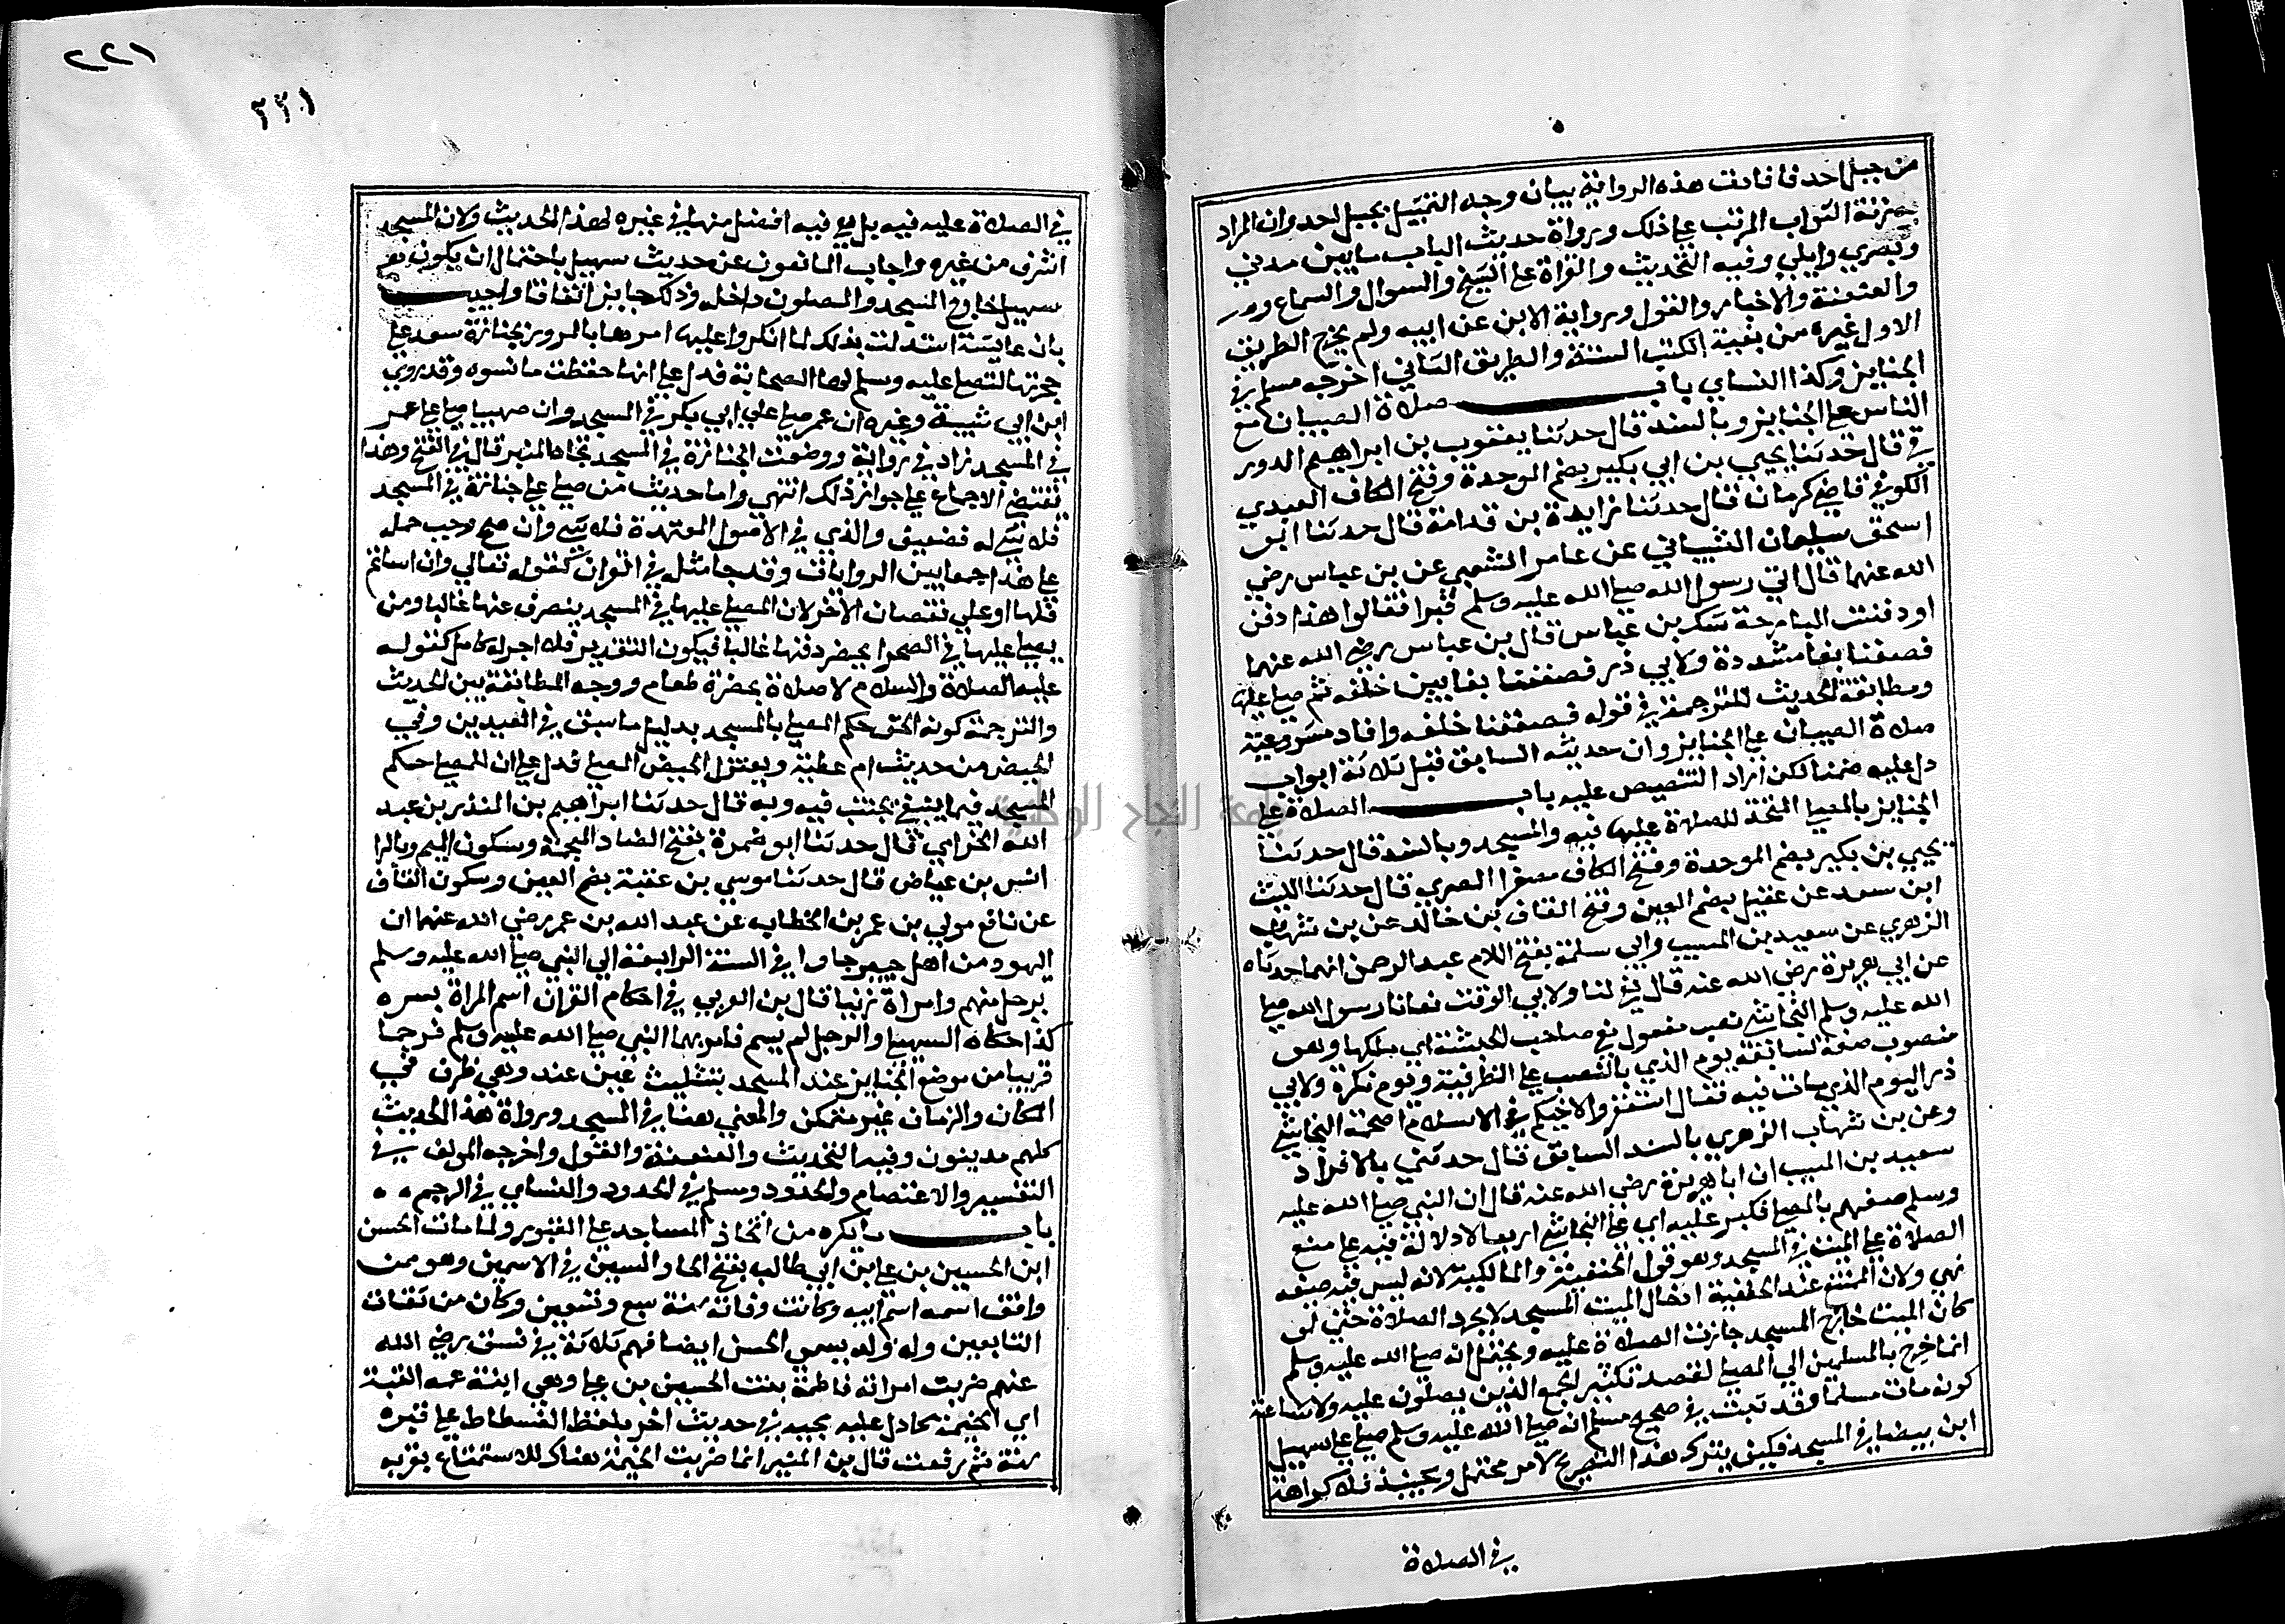 من جبل احد فافادت هذه الرواية بيان وجه التمثيل بجبل احد وان المراد
به زنة الثواب المرتب على ذلك ورواة حديث الباب ما بين مدني
وبصري وايلي وفيه التحديث والقراة على الشيخ والسوال والسماع
والعنعنة والاخبار والقول ورواية الابن عن ابيه ولم يخرج الطريق
الاول غيره من بقية الكتب الستة والطريق الثاني اخرجه مسلم في
الجنايز وكذا النساي باب صلاة الصبيان مع
الناس على الجنايز وبالسند قال حدثنا يعقوب بن ابراهيم الدور
قي قال حدثنا يحيى بن ابي بكير بضم الموحدة وفتح الكاف العبدي
الكوفي قاضي كرمان قال حدثنا زايدة بن قدامة قال حدثنا ابو
اسحق سليمان الشيباني عن عامر الشعبي عن بن عباس رضي
الله عنهما قال اتي رسول الله صلى الله عليه وسلم قبرا فقالوا هذا دفن
او دفنت البارحة شك بن عباس قال بن عباس رضي الله عنهما
فصفنا بفا مشددة ولابي ذر فصففنا بفايين خلفه ثم صلى عليها
ومطابقة الحديث للترجمة في قوله فصففنا خلفه وافاد مشروعية
صلاة الصبيان على الجنايز وان حديثه السابق قبل ثلاثة ابواب
دل عليه ضمنا لكن اراد التنصيص عليه باب الصلاة على
الجنايز بالمصلى المتخذ للصلاة عليها فيه والمسجد وبالسند قال حدثنا
يحيى بن بكير بضم الموحدة وفتح الكاف مصغرا المصري قال حدثنا الليث
ابن سعد عن عقيل بضم العين وفتح القاف بن خالد عن بن شهاب
الزهري عن سعيد بن المسيب وابي سلمة بفتح اللام عبد الرحمن انهما حدثاه
عن ابي هريرة رضي الله عنه قال نعى لنا ولابي الوقت نعانا رسول الله صلى
الله عليه وسلم النجاشي نصب مفعول نعى صاحب الحبشة اي ملكها وهو
منصوب صفة لسابقه يوم الذي بالنصب على الظرفية ويوم نكرة ولابي
ذر اليوم الذي مات فيه فقال استغفروا لاخيكم في الاسلام اصحمة النجاشي
وعن بن شهاب الزهري بالسند السابق قال حدثني بالافراد
سعيد بن المسيب ان ابا هريرة رضي الله عنه قال ان النبي صلى الله عليه
وسلم صفهم بالمصلى فكبر عليه اي على النجاشي اربعا لا دلالة فيه على منع
الصلاة على الميت في المسجد وهو قول الحنفية والمالكية لانه ليس فيه صيغة
نهي ولان الممتنع عند الحنفية ادخال الميت المسجد لا مجرد الصلاة حتى لو
كان الميت خارج المسجد جازت الصلاة عليه ويحتمل انه صلى الله عليه وسلم
انما خرج بالمسلمين الى المصلى لقصد تكثير الجمع الذين يصلون عليه ولاشاعة
كونه مات مسلما وقد ثبت في صحيح مسلم انه صلى الله عليه وسلم صلى على سهيل
ابن بيضا في المسجد فكيف يترك هذا الصريح لامر محتمل وحينئذ فلا كراهة
في الصلاة
٢٢١
٢٢١
في الصلاة عليه فيه بل هي فيه افضل منها في غيره لهذا الحديث ولان المسجد
اشرف من غيره واجاب المانعون عن حديث سهيل باحتمال ان يكون نعش
سهيل خارج المسجد والمصلون داخله وذلك جايز اتفاقا واجيب
بان عايشة استدلت بذلك لما انكروا عليها امرها بالمرور بجنازة سعد على
حجرتها لتصلي عليه وسلم لها الصحابة فدل على انها حفظت ما نسوه وقد روى
ابن ابي شيبة وغيره ان عمر صلى على ابي بكر في المسجد وان صهيبا صلى على عمر
في المسجد زاد في رواية ووضعت الجنازة في المسجد تجاه المنبر قال في الفتح وهذا
يقتضي الاجماع على جواز ذلك انتهى واما حديث من صلى على جنازة في المسجد
فلا شي له فضعيف والذي في الاصول المعتمدة فلا شي وان صح وجب حمله
على هذا جمعا بين الروايات وقد جا مثله في القران كقوله تعالى وان اساتم
فلها او على نقصان الاجر لان المصلي عليها في المسجد ينصرف عنها غالبا ومن
يصلي عليها في الصحرا يحضر دفنها غالبا فيكون التقدير فلا اجر له كامل كقوله
عليه الصلاة والسلام لا صلاة بحضرة طعام ووجه المطابقة بين الحديث
والترجمة كونه الحق حكم المصلى بالمسجد بدليل ما سبق في العيدين وفي
الحيض من حديث ام عطية ويعتزل الحيض المصلى فدل على ان للمصلى حكم
المسجد فيما ينبغي يجتنب فيه وبه قال حدثنا ابراهيم بن المنذر بن عبد
الله الحزامي قال حدثنا ابو ضمرة بفتح الضاد المعجمة وسكون الميم وبالرا
انس بن عياض قال حدثنا موسى بن عقبة بضم العين وسكون القاف
عن نافع مولى بن عمر بن الخطاب عن عبد الله بن عمر رضي الله عنهما ان
اليهود من اهل خيبر جاوا في السنة الرابعة الى النبي صلى الله عليه وسلم
برجل منهم وامراة زنيا قال بن العربي في احكام القران اسم المراة بسره
كذا حكاه السهيلي والرجل لم يسم فامر بهما النبي صلى الله عليه وسلم فرجما
قريبا من موضع الجنايز عند المسجد بتثليث عين عند وهي ظرف في
المكان والزمان غير متمكن والمعنى هنا في المسجد ورواة هذا الحديث
كلهم مدنيون وفيه التحديث والعنعنة والقول واخرجه المولف في
التفسير والاعتصام والحدود ومسلم في الحدود والنساي في الرجم
باب ما يكره من اتخاذ المساجد على القبور ولما مات الحسن
ابن الحسين بن علي بن ابي طالب بفتح الحا والسين في الاسمين وهو ممن
وافق اسمه اسم ابيه وكانت وفاته سنة سبع وتسعين وكان من ثقات
التابعين وله ولد يسمى الحسن ايضا فهم ثلاثة في نسق رضي الله
عنهم ضربت امراته فاطمة بنت الحسين بن علي وهي ابنة عمه القبة
اي الخيمة كما دل عليه مجيه في حديث اخر بلفظ الفسطاط على قبره
سنة ثم رفعت قال بن المنير انما ضربت الخيمة هناك للاستمتاع بقربه
جامعة النجاح الوطنية